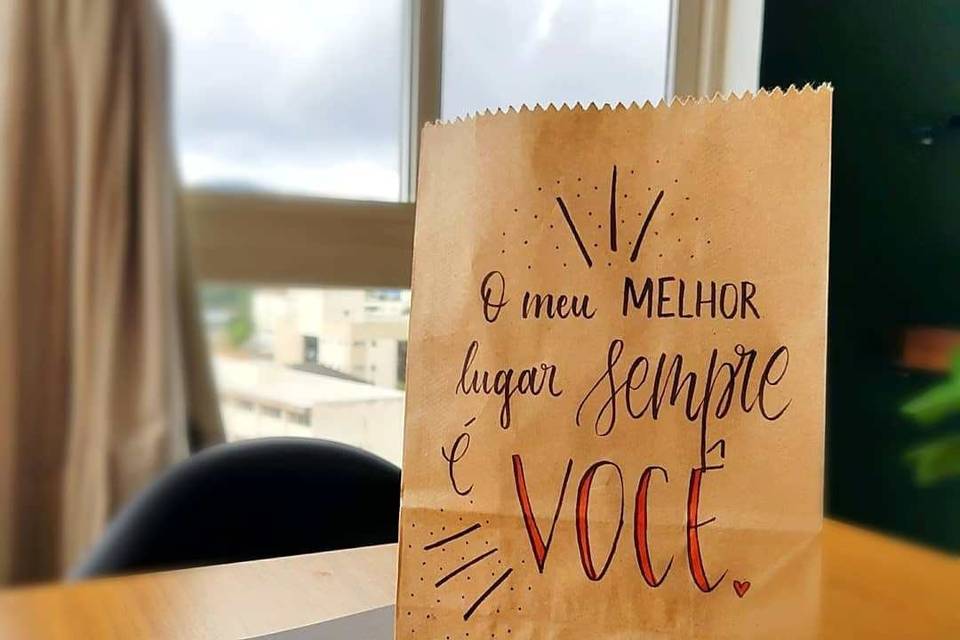 O meu MELHOR
lugar sempre
é VOCÊ.